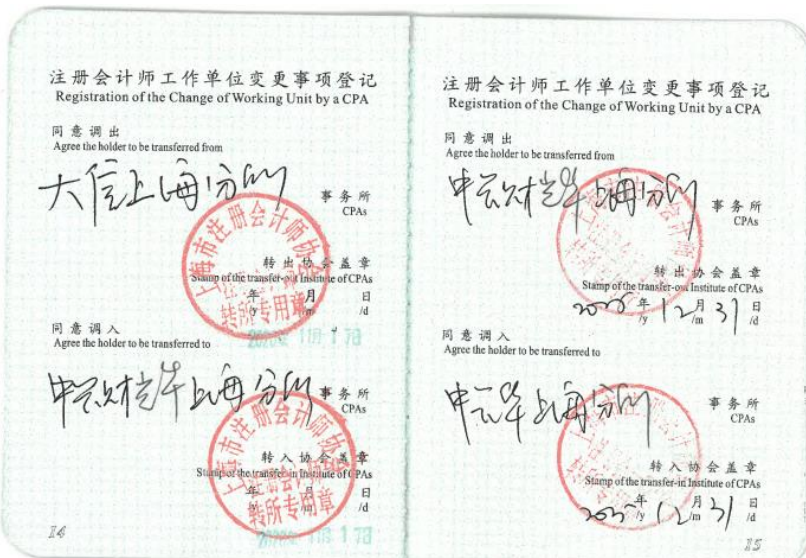 注册会计师工作单位变更事项登记
Registration of the Change of Working Unit by a CPA
同意调出
Agree the holder to be transferred from
大信上海分所
事务所
CPAs
上海市注册会计师协会
转所专用章
转出协会盖章
Stamp of the transfer-out Institute of CPAs
年 月 日
/y /m /d
同意调入
Agree the holder to be transferred to
上海分所
事务所
CPAs
上海市注册会计师协会
转所专用章
转入协会盖章
Stamp of the transfer-in Institute of CPAs
年 月 日
/y /m /d
14
注册会计师工作单位变更事项登记
Registration of the Change of Working Unit by a CPA
同意调出
Agree the holder to be transferred from
上海分所
事务所
CPAs
转出协会盖章
Stamp of the transfer-out Institute of CPAs
年 12 月 31 日
/y /m /d
同意调入
Agree the holder to be transferred to
上海分所
事务所
CPAs
转入协会盖章
Stamp of the transfer-in Institute of CPAs
年 12 月 31 日
/y /m /d
15